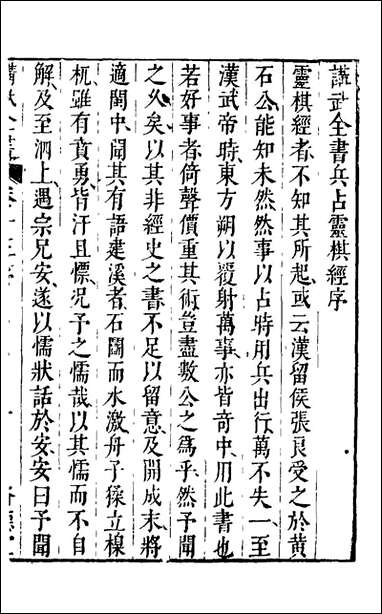 講武全書兵占靈棋經序
靈棋經者不知其所起或云漢留侯張良受之於黃
石公能知未然然事以占時用兵出行萬不失一至
漢武帝時東方朔以覆射萬事亦皆奇中用此書也
若好事者倚聲價重其術豈盡數公之為乎然予聞
之久矣以其非經史之書不足以留意及開成末將
適閩中聞其有語建溪者石鬬而水激舟子篙立櫋
杌雖有賁勇皆汗且慓况予之懦哉以其懦而不自
解及至泗上遇宗兄安遂以懦狀話於安安曰予聞
講武全書